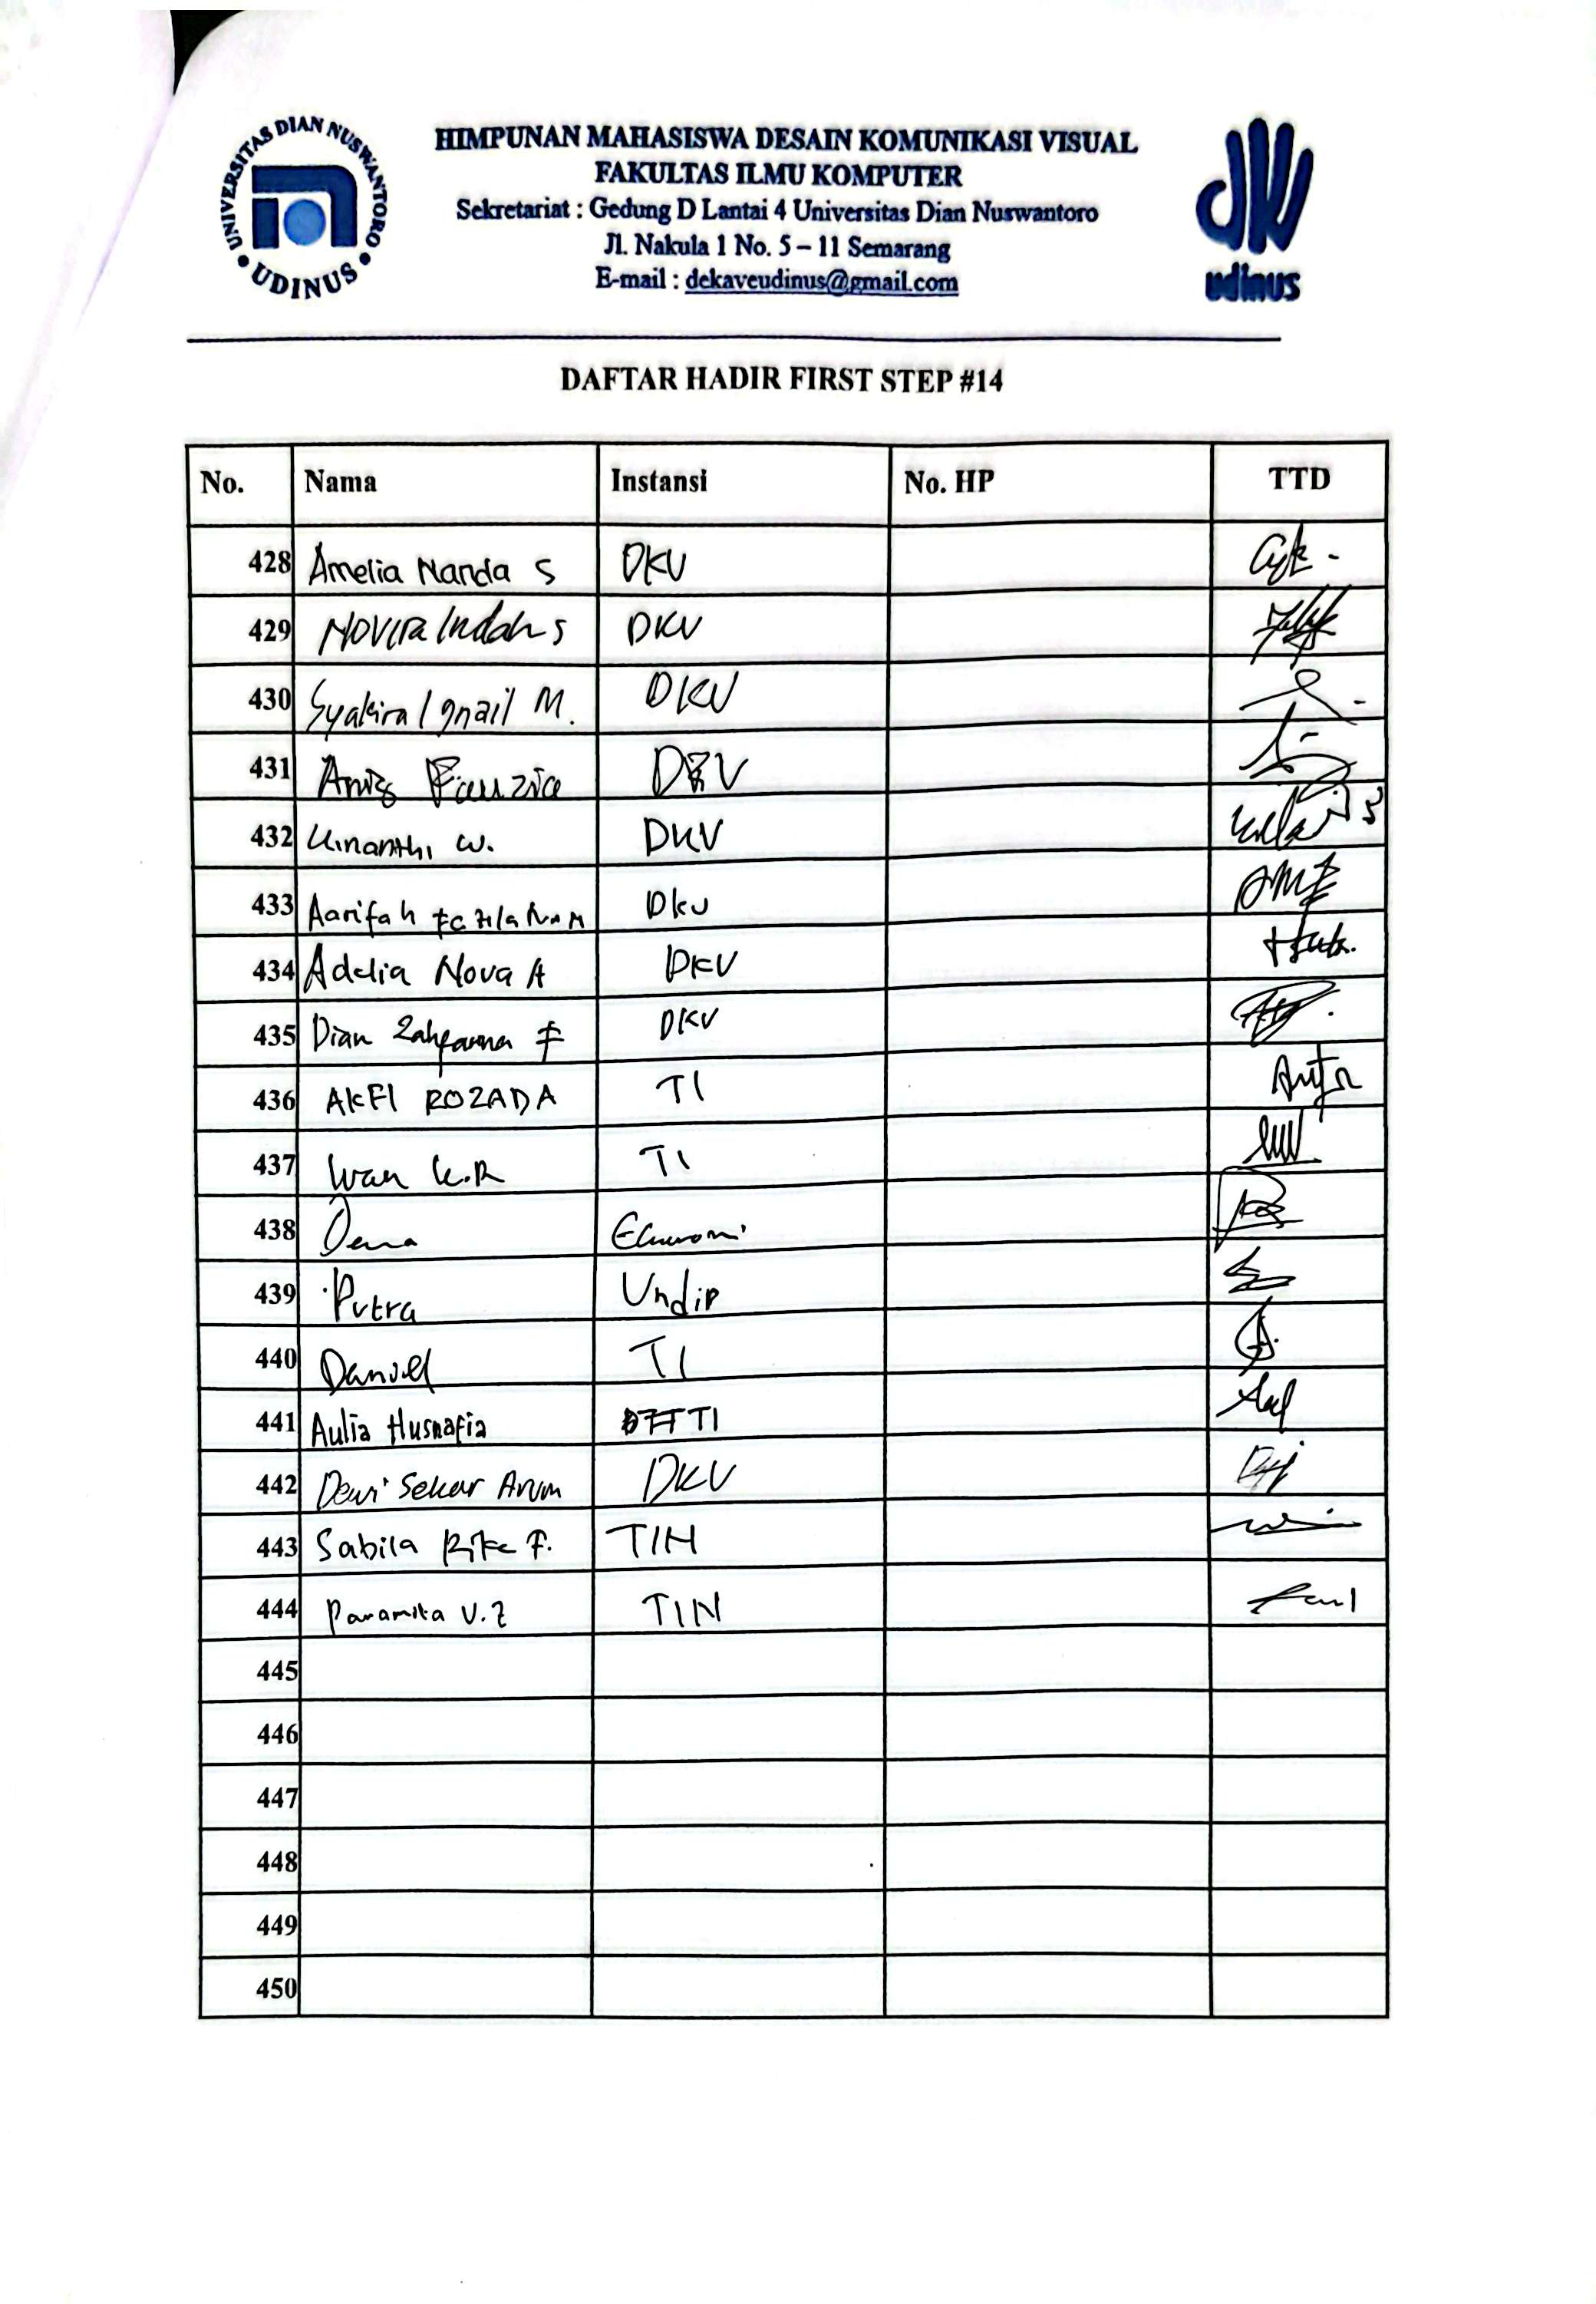 UNIVERSITAS DIAN NUSWANTORO
• UDINUS •
HIMPUNAN MAHASISWA DESAIN KOMUNIKASI VISUAL
FAKULTAS ILMU KOMPUTER
Sekretariat : Gedung D Lantai 4 Universitas Dian Nuswantoro
Jl. Nakula 1 No. 5 – 11 Semarang
E-mail : dekaveudinus@gmail.com
dkv
udinus
DAFTAR HADIR FIRST STEP #14
No. Nama Instansi No. HP TTD
428 Amelia Nanda S DKV
429 Novira Indah S DKV
430 Syakira Ignail M. DKV
431 Anis Fauzia DKV
432 Kinanthi W. DKV
433 Aarifah DKV
434 Adelia Nova A DKV
435 Dian F DKV
436 AKFI ROZADA TI
437 Iwan K.R TI
438 Ekonomi
439 Putra Undip
440 Daniel TI
441 Aulia Husnafia TI
442 Dewi Sekar Arum DKV
443 Sabila Rike F. TIN
444 Paramita V.Z TIN
445
446
447
448
449
450